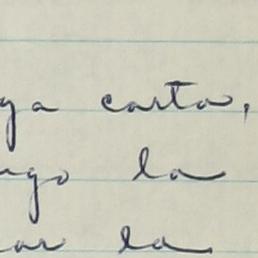 ga carta,
ngo la
ar la